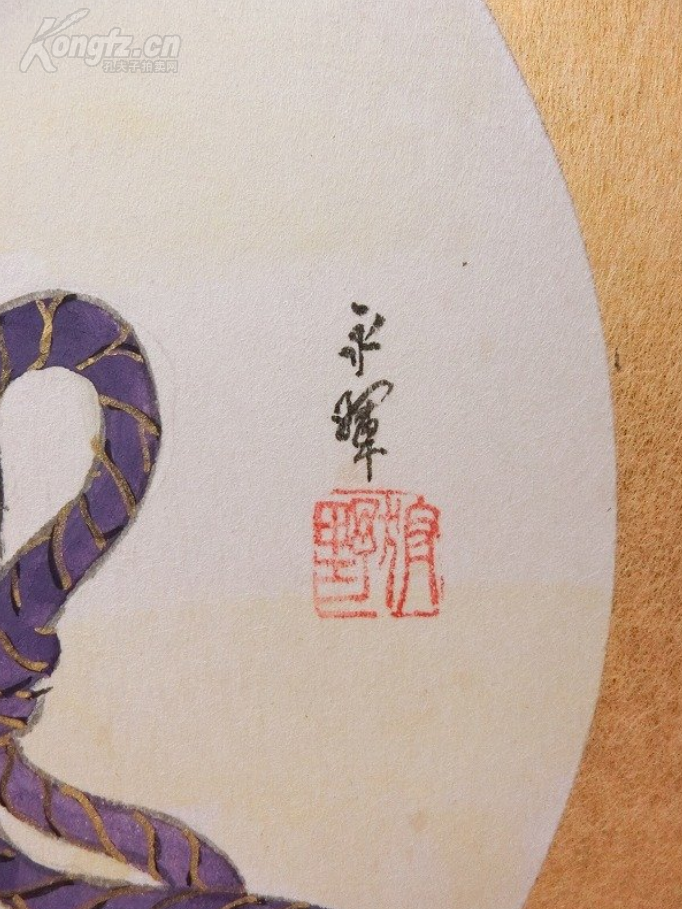 Kongfz.cn
孔夫子拍卖网
永
暉